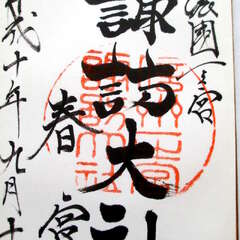 濃國一之宮
諏訪大社
春宮
平成十年九月十